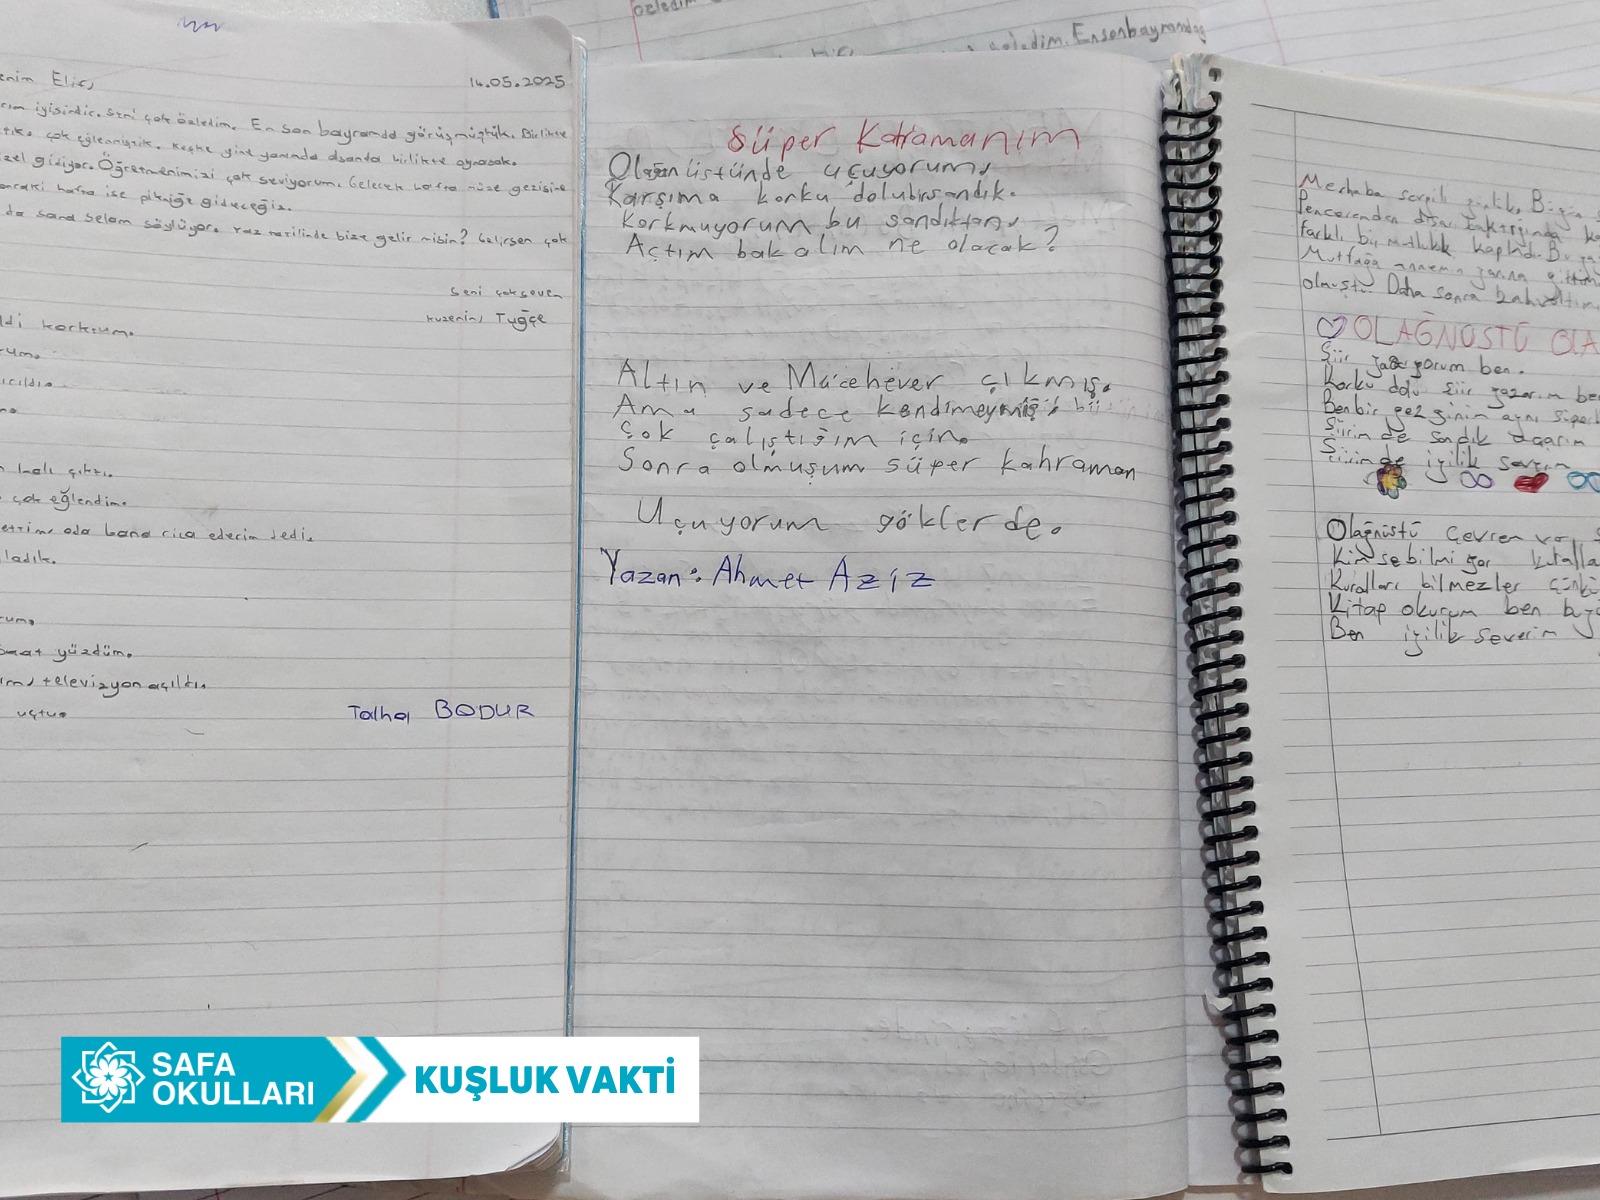 özledim
özledim. En son bayramda
14.05.2025
enim Elif,
rım iyisindir. Seni çok özledim. En son bayramda görüşmüştük. Birlikte
tık. çok eğlenmiştik. Keşke yine yanımda olsanda birlikte oynasak.
üzel gidiyor. Öğretmenimizi çok seviyorum. Gelecek hafta müze gezisine
onraki hafta ise pikniğe gideceğiz.
da sana selam söylüyor. Yaz tatilinde bize gelir misin? Gelirsen çok
Seni çok seven
kuzenin, Tuğçe
ldi korktum.
rum.
ıcıldı.
halı çıktı.
çok eğlendim.
ettim, oda bana rica ederim dedi.
ladık.
rum.
saat yüzdüm.
ım, televizyon açıldı.
uçtu.
Talha BODUR
Süper Kahramanım
Olağanüstünde uçuyorum,
Karşıma korku dolu bir sandık.
Korkmuyorum bu sandıktan,
Açtım bakalım ne olacak?
Altın ve Mücehever çıkmış.
Ama sadece kendimeymiş
Çok çalıştığım için.
Sonra olmuşum süper kahraman
Uçuyorum göklerde.
Yazan: Ahmet Aziz
Merhaba sevgili günlük, Bugün
Penceremden dışarı baktığımda
farklı bir mutluluk kapladı. Bu
Mutfağa annemin yanına gittim
olmuştu. Daha sonra kahvaltımı
OLAĞNÜSTÜ OLA
Şiir yazıyorum ben.
Korku dolu şiir yazarım ben
Ben bir gezginim aynı süper
Şiirim de sandık açarım
Şiirim de iyilik severim
Olağnüstü Çevren var,
Kimse bilmiyor kitalla
Kuralları bilmezler çünkü
Kitap okurum ben
Ben iyilik severim
SAFA
OKULLARI
KUŞLUK VAKTİ